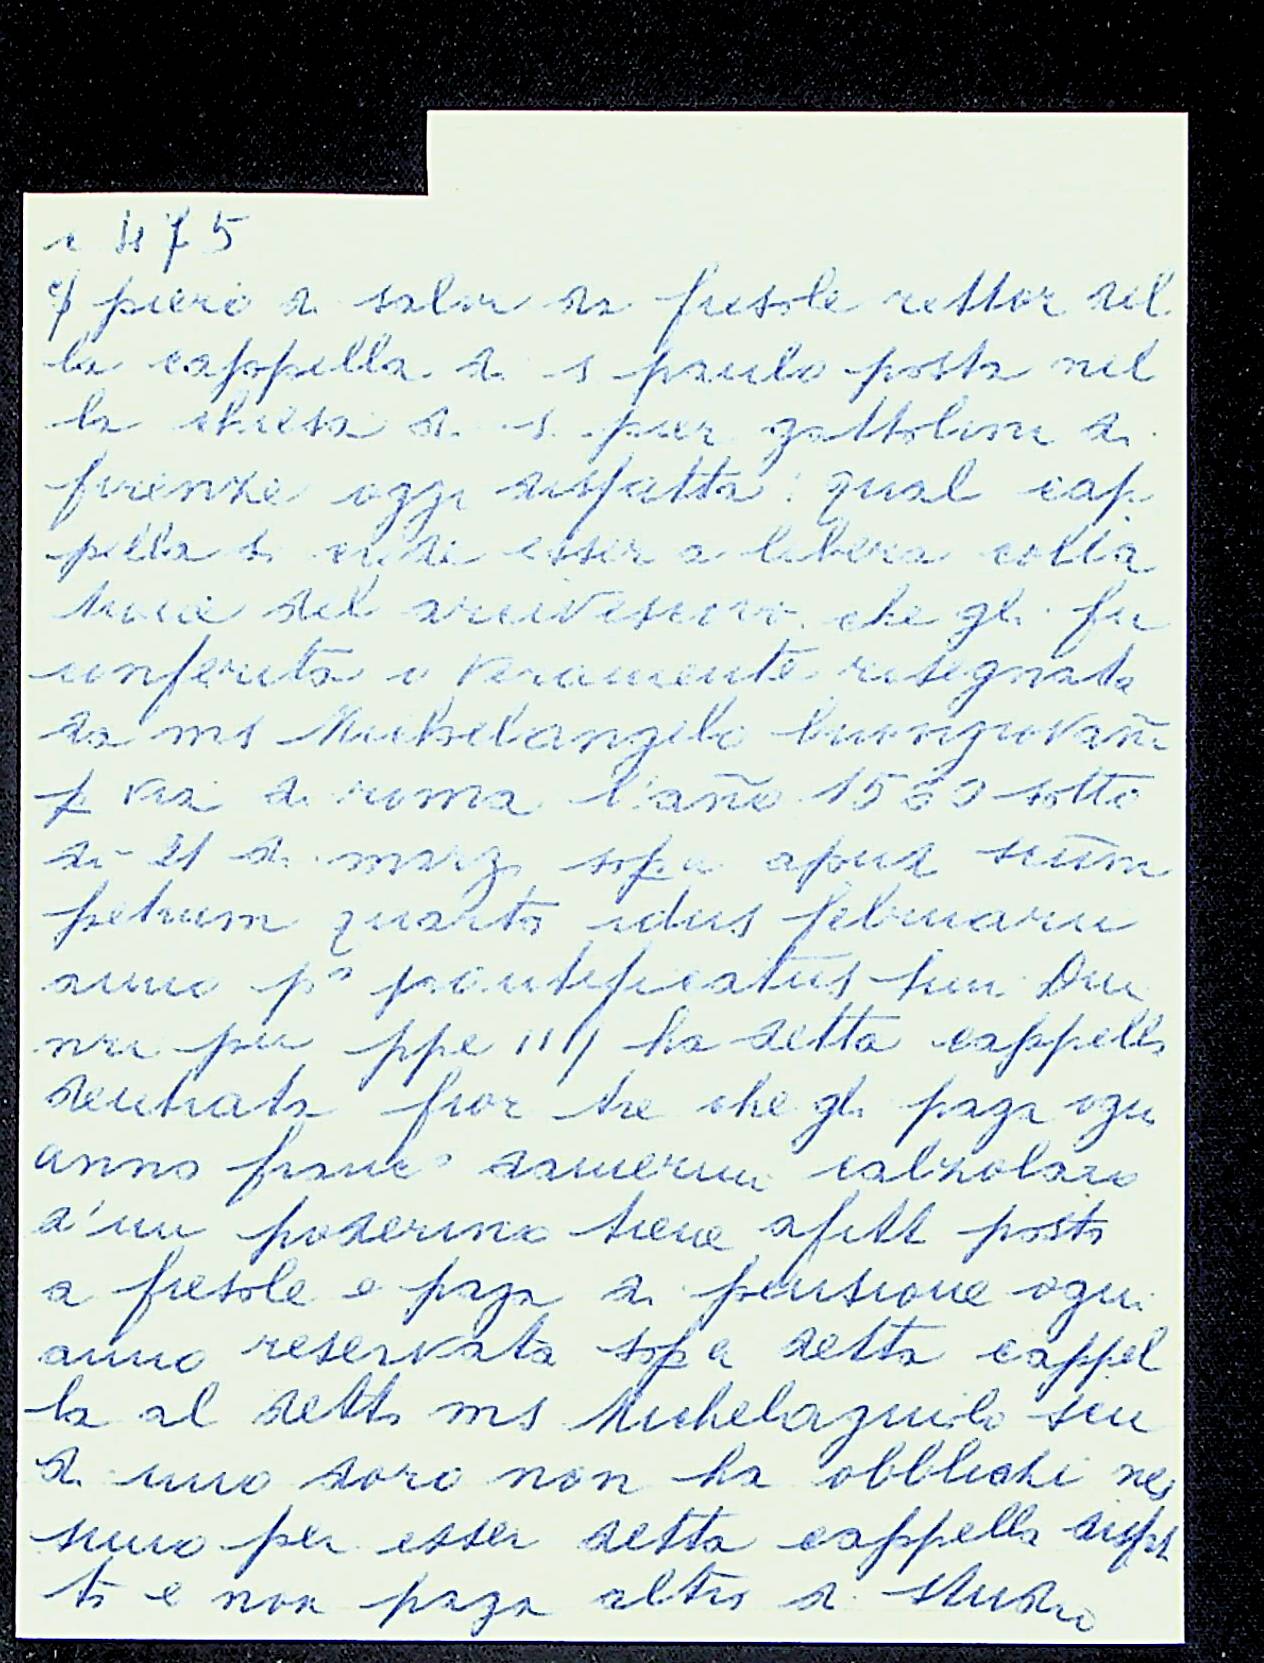 c 475
piero di salvi da fiesole rettor del
la cappella di s paulo posta nel
la chiesa di s. pier gattolini di
firenze oggi disfatta: qual cap
pella di esser a libera colla
tione del arcivescovo che gli fu
conferita o veramente resegnata
da ms Michelangelo buongiovañi
p via di roma l'año 15 sotto
dì 21 di marzo sopa apud
petrum quarto idus februarii
anno p° pontificatus
nri pii ppe iiij ha detta cappella
dentrata fior tre che gli paga ogni
anno franc° calzolaio
d'un poderino tiene afitto posto
a fiesole e paga di pensione ogni
anno reservata sopa detta cappel
la al detto ms Michelagniolo scu
di uno doro non ha obblichi nes
suno per esser detta cappella disfat
ta e non paga altro di studio